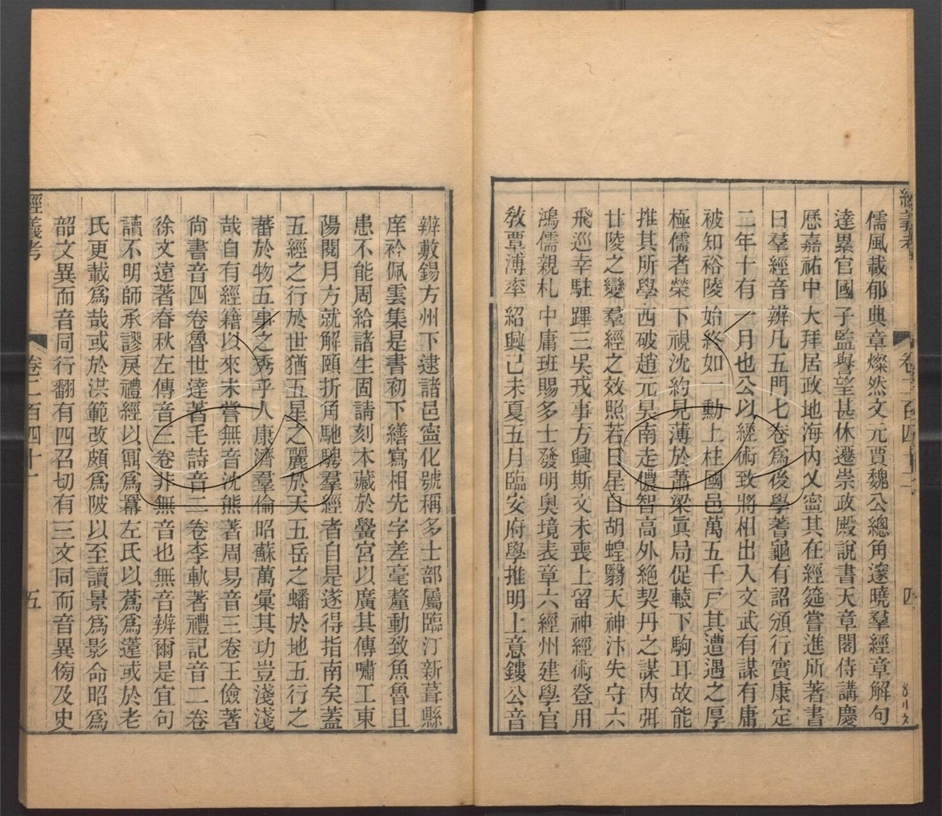 儒風載郁典章燦然文元賈魏公總角邃曉羣經章解句
達累官國子監譽望甚休遷崇政殿說書天章閣侍講慶
歷嘉祐中大拜居政地海內乂寧其在經筵嘗進所著書
曰羣經音辨凡五門七卷爲後學蓍龜有詔頒行實康定
二年十有一月也公以經術致將相出入文武有謀有庸
被知裕陵始終如一勳上柱國邑萬五千戸其遭遇之厚
極儒者榮下視沈約見薄於蕭梁眞局促轅下駒耳故能
推其所學西破趙元昊南走儂智高外絕契丹之謀內弭
甘陵之變羣經之效照若日星自胡蝗翳天神汴失守六
飛巡幸駐蹕三吳戎事方興斯文未喪上留神經術登用
鴻儒親札中庸班賜多士發明奧境表章六經州建學官
敎覃溥率紹興己未夏五月臨安府學推明上意鏤公音
經義考
卷二百四十二
四
辨敷錫方州下逮諸邑寧化號稱多士部屬臨汀新葺縣
庠衿佩雲集是書初下繕寫相先字差毫釐動致魚魯且
患不能周給諸生固請刻木藏於黌宮以廣其傳嘯工東
陽閱月方就解頤折角馳騁羣經者自是遂得指南矣蓋
五經之行於世猶五星之麗於天五岳之蟠於地五行之
蕃於物五事之秀乎人康濟羣倫昭蘇萬彙其功豈淺淺
哉自有經籍以來未嘗無音沈熊著周易音三卷王儉著
尙書音四卷魯世達著毛詩音二卷李軌著禮記音二卷
徐文遠著春秋左傳音三卷非無音也無音辨爾是宜句
讀不明師承謬戾禮經以䥫爲羃左氏以蔿爲薳或於老
氏更載爲哉或於洪範改頗爲陂以至讀景爲影命昭爲
韶文異而音同行翻有四召切有三文同而音異傍及史
經義考
卷二百四十二
五